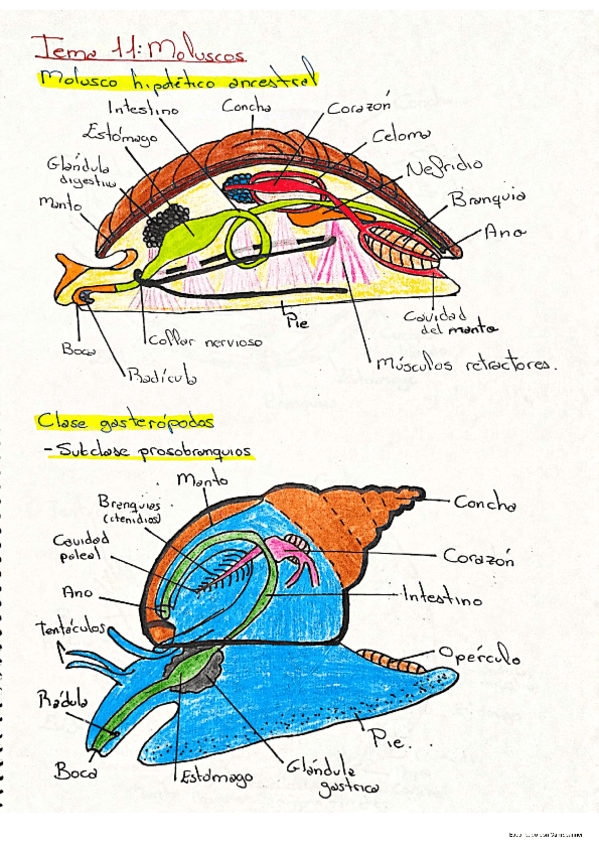 Tema 11: Moluscos
Molusco hipotético ancestral
Intestino
Concha
Corazón
Estómago
Celoma
Glándula
digestiva
Nefridio
Manto
Branquia
Ano
Cavidad
del manto
Pie
Collar nervioso
Boca
Músculos retractores.
Radícula
Clase gasterópodos
- Subclase prosobranquios
Manto
Brenquias
(ctenidios)
Concha
Cavidad
paleal
Corazón
Ano
Intestino
Tentáculos
Opérculo
Rádula
Pie.
Boca
Estómago
Glándula
gástrica